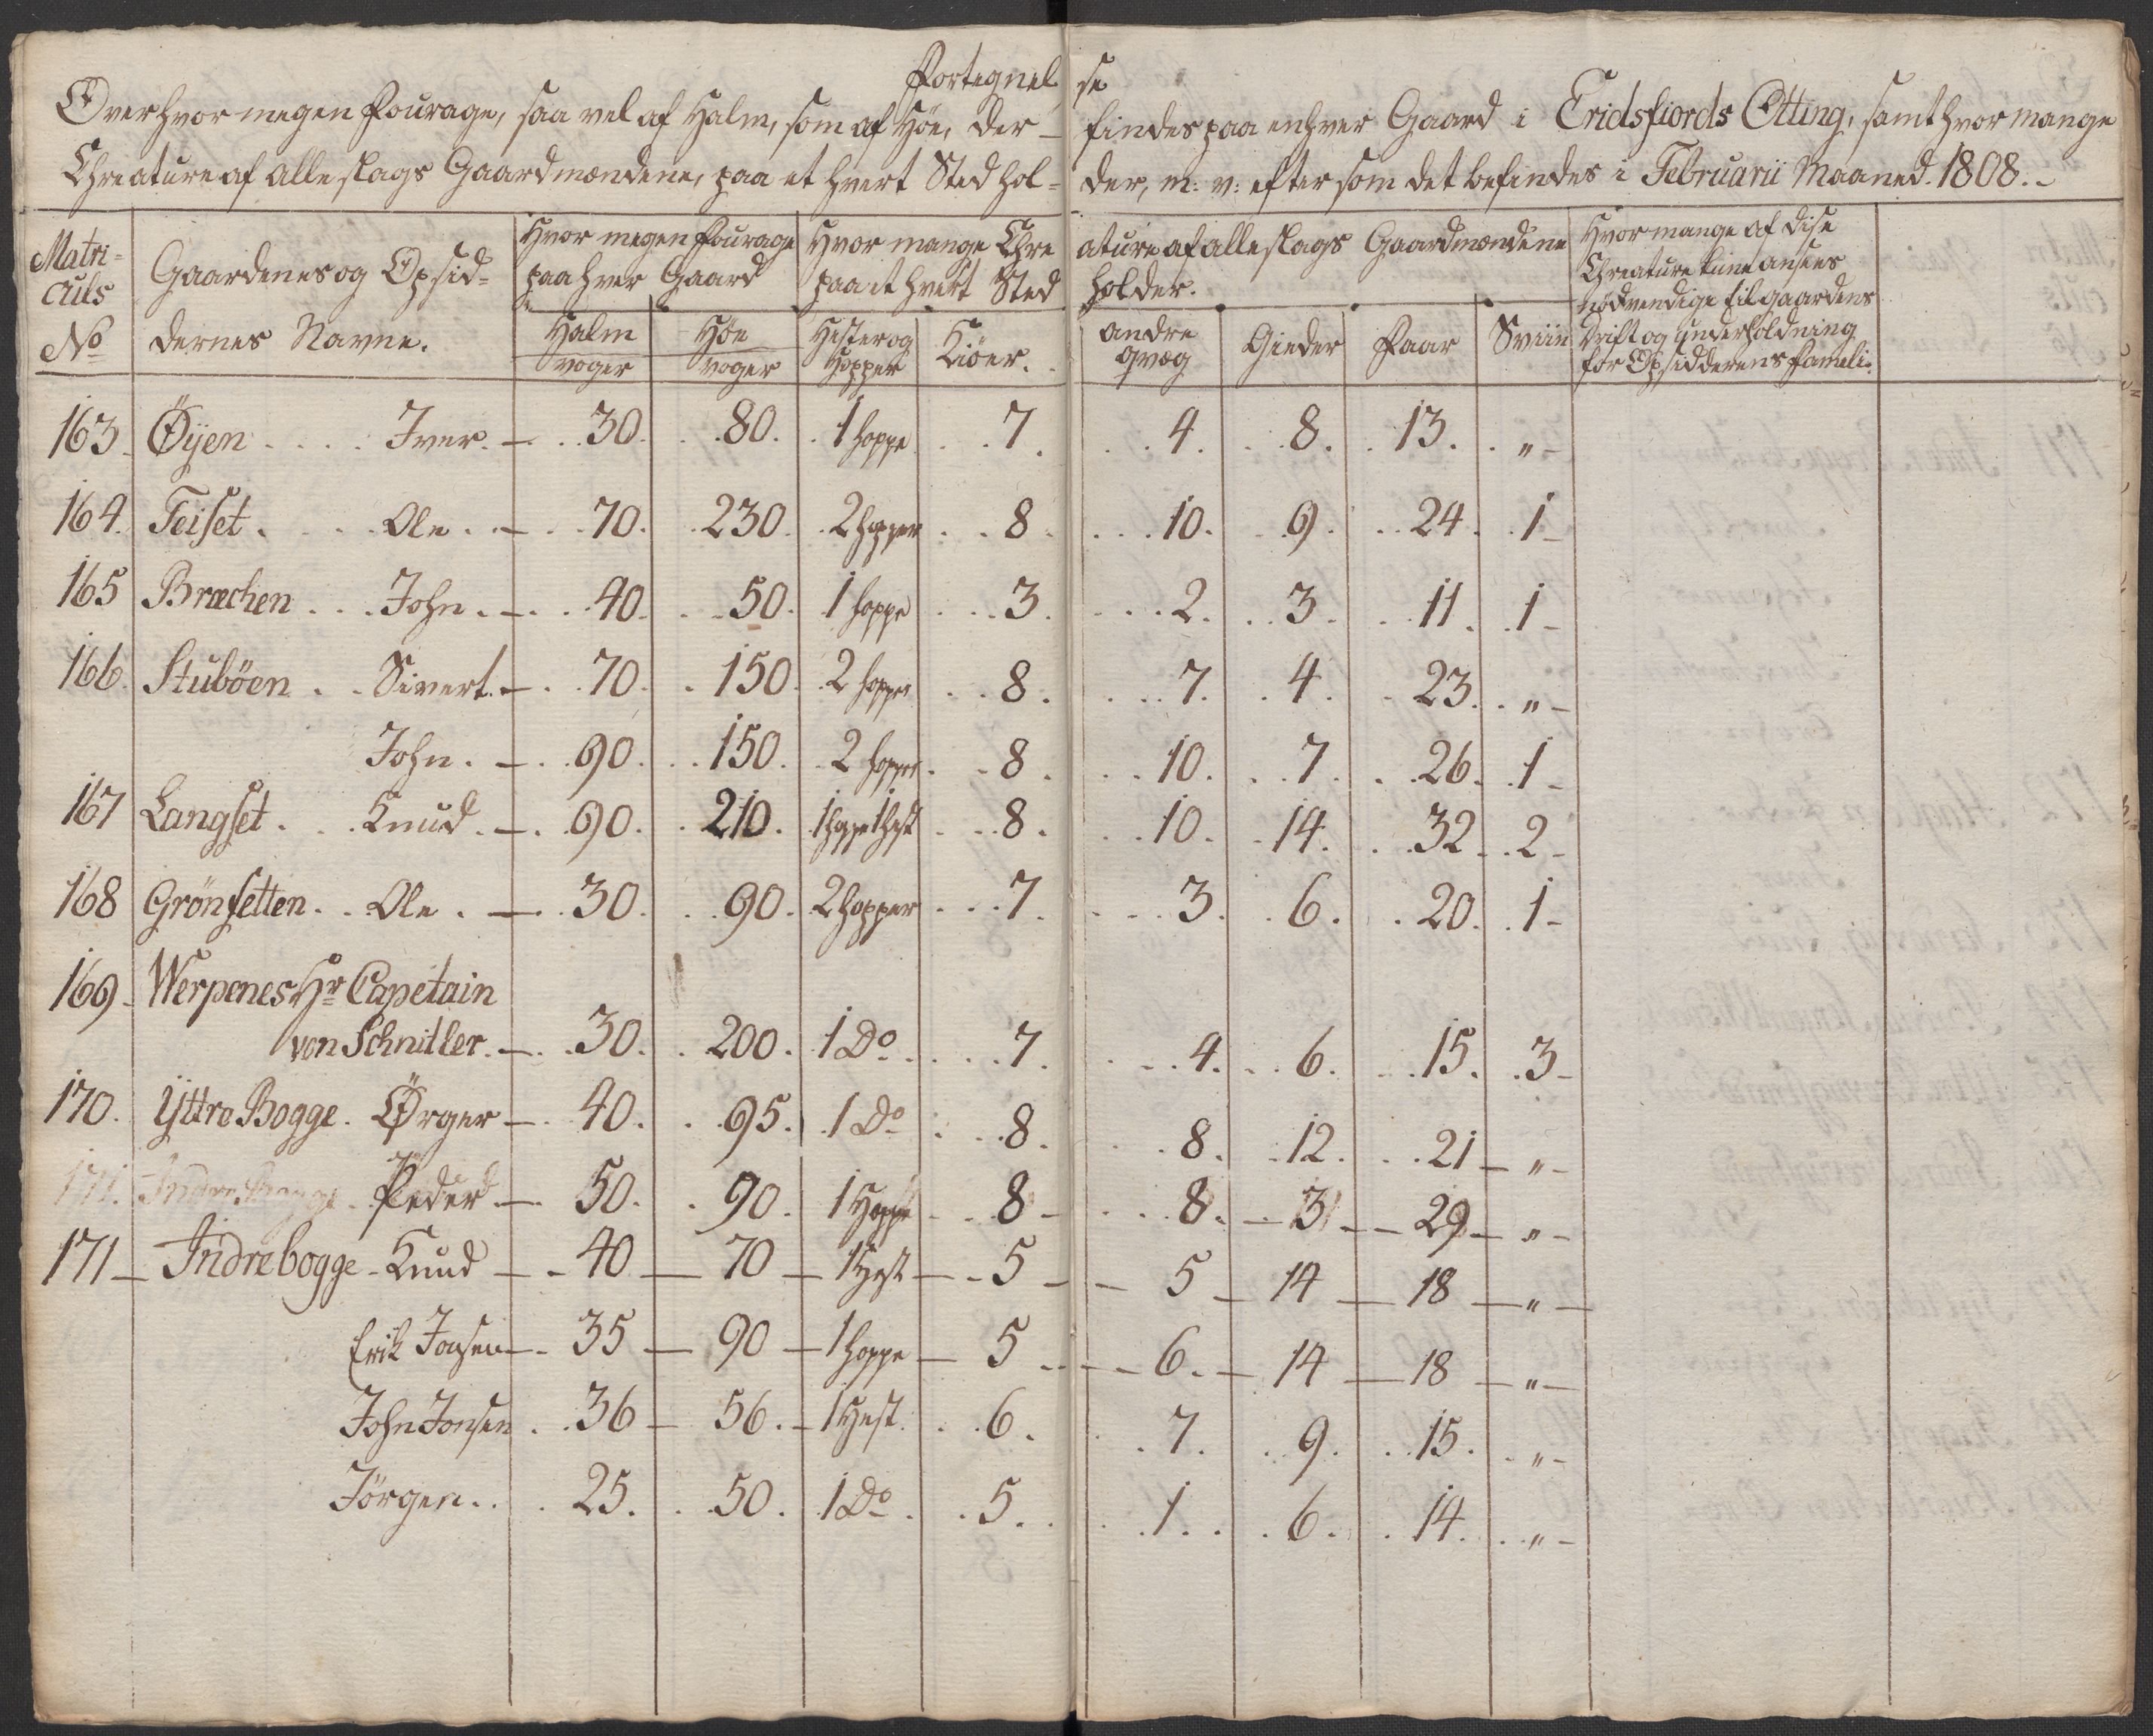 Fortegnelse
Over hvor megen Fourage, saa vel af Halm, som af Höe, der findes paa enhver Gaard i Eridsfiords Otting, samt hvor mange
Chreature af alle slags Gaardmændene, paa et hvert Sted hol=der, m: v: efter som det befindes i Februarii Maaned 1808.
Matri=culs No | Gaardenes og Opsid=dernes Navne. | Hvor megen Fourage paa hver Gaard | Hvor mange Chreature af alle slags Gaardmændene paa et hvert Sted holder. | Hvor mange af dise Chreature kune ansees nødvendige til gaardens Drift og underholdning for Opsidderens Famili.
Halm voger | Höe voger | Hester og Hopper | Kiöer. | andre qvæg | Gieder | Faar | Sviin
163 Öÿen . . . . Iver. — 30. 80. 1 hoppe 7. 4. 8. 13. „ –
164. Teiset . . . Ole. — 70. 230. 2 hopper 8. 10. 9. 24. 1 –
165 Bræchen . . . John. — 40. 50. 1 hoppe 3. 2. 3. 11. 1 –
166. Stuböen . . Sivert. — 70. 150. 2 hopper 8. 7. 4. 23. „ –
John. — 90. 150. 2 hopper 8. 10. 7. 26. 1 –
167 Langset . . . Knud. — 90. 210. 1 hoppe 1 hest 8. 10. 14. 32. 2 –
168 Grönsetten . . Ole. — 30. 90. 2 hopper 7. 3. 6. 20. 1 –
169 – Werpenes Hr Capetain
von Schnitler. — 30. 200. 1 Do 7. 4. 6. 15. 3 –
170. Ÿttre Bogge. Örger — 40. 95. 1 Do 8. 8. 12. 21 — „ –
171. Indre Bogge. Peder — 50. 90. 1 Hoppe 8 – 8. — 31 — 29 — „ –
171 – Indrebogge – Knud — 40 — 70 — 1 Hest — 5 — 5 — 14 — 18 — „ —
Erik Jonsen — 35 — 90 — 1 hoppe — 5 — 6. — 14 — 18 — „ —
John Jonsen . 36 — 56. — 1 Hest. 6. 7. 9. 15. „ –
Jörgen . . 25. 50. 1 Do 5. 1. 6. 14. „ –